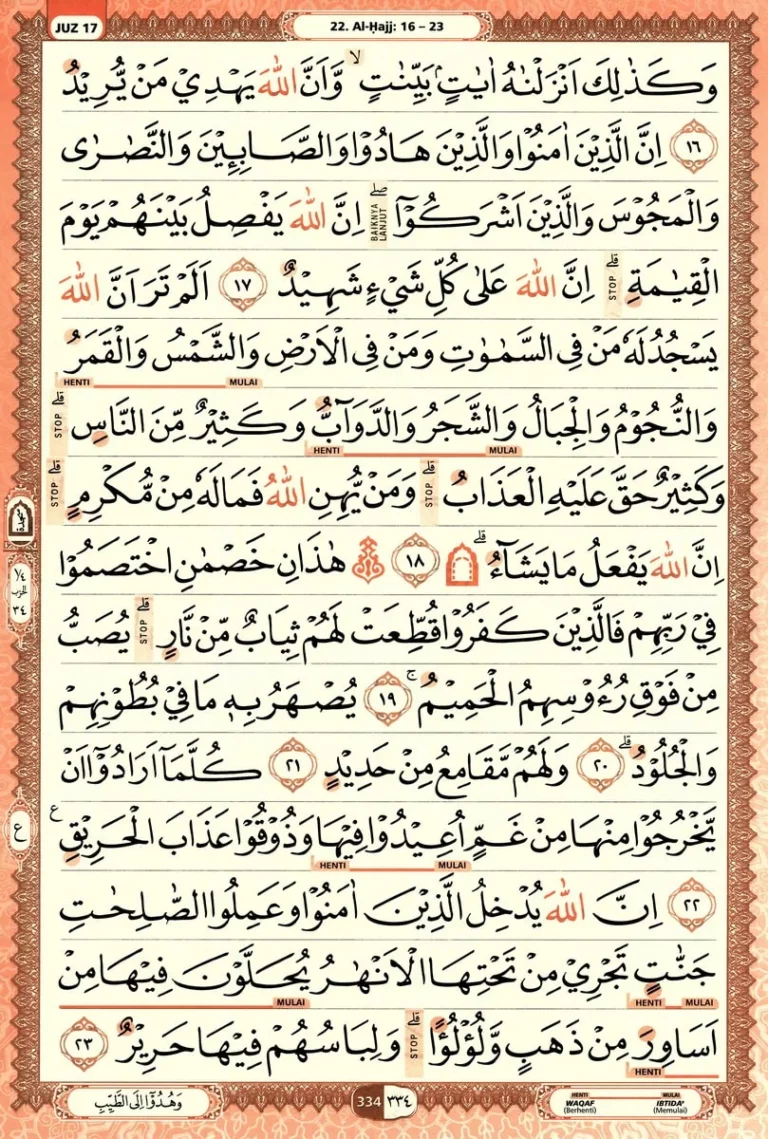 JUZ 17
22. Al-Ḥajj: 16 – 23
وَكَذٰلِكَ اَنْزَلْنٰهُ اٰيٰتٍۢ بَيِّنٰتٍۙ وَّاَنَّ اللّٰهَ يَهْدِيْ مَنْ يُّرِيْدُ
١٦ اِنَّ الَّذِيْنَ اٰمَنُوْا وَالَّذِيْنَ هَادُوْا وَالصَّابِــِٕيْنَ وَالنَّصٰرٰى
وَالْمَجُوْسَ وَالَّذِيْنَ اَشْرَكُوْٓا ۖ BAIKNYA LANJUT اِنَّ اللّٰهَ يَفْصِلُ بَيْنَهُمْ يَوْمَ
الْقِيٰمَةِۗ STOP اِنَّ اللّٰهَ عَلٰى كُلِّ شَيْءٍ شَهِيْدٌ ١٧ اَلَمْ تَرَ اَنَّ اللّٰهَ
يَسْجُدُ لَهٗ مَنْ فِى السَّمٰوٰتِ وَمَنْ فِى الْاَرْضِ وَالشَّمْسُ وَالْقَمَرُ
HENTI MULAI
وَالنُّجُوْمُ وَالْجِبَالُ وَالشَّجَرُ وَالدَّوَاۤبُّ وَكَثِيْرٌ مِّنَ النَّاسِۗ STOP
HENTI MULAI
وَكَثِيْرٌ حَقَّ عَلَيْهِ الْعَذَابُۗ STOP وَمَنْ يُّهِنِ اللّٰهُ فَمَا لَهٗ مِنْ مُّكْرِمٍۗ STOP
اِنَّ اللّٰهَ يَفْعَلُ مَا يَشَاۤءُ ۩ۗ ١٨ ۞ هٰذَانِ خَصْمٰنِ اخْتَصَمُوْا
فِيْ رَبِّهِمْ فَالَّذِيْنَ كَفَرُوْا قُطِّعَتْ لَهُمْ ثِيَابٌ مِّنْ نَّارٍۗ STOP يُصَبُّ
مِنْ فَوْقِ رُءُوْسِهِمُ الْحَمِيْمُۚ ١٩ يُصْهَرُ بِهٖ مَا فِيْ بُطُوْنِهِمْ
وَالْجُلُوْدُۗ ٢٠ وَلَهُمْ مَّقَامِعُ مِنْ حَدِيْدٍ ٢١ كُلَّمَآ اَرَادُوْٓا اَنْ
يَّخْرُجُوْا مِنْهَا مِنْ غَمٍّ اُعِيْدُوْا فِيْهَا وَذُوْقُوْا عَذَابَ الْحَرِيْقِ ع
HENTI MULAI
٢٢ اِنَّ اللّٰهَ يُدْخِلُ الَّذِيْنَ اٰمَنُوْا وَعَمِلُوا الصّٰلِحٰتِ
جَنّٰتٍ تَجْرِيْ مِنْ تَحْتِهَا الْاَنْهٰرُ يُحَلَّوْنَ فِيْهَا مِنْ
MULAI HENTI MULAI
اَسَاوِرَ مِنْ ذَهَبٍ وَّلُؤْلُؤًاۗ STOP وَلِبَاسُهُمْ فِيْهَا حَرِيْرٌ ٢٣
HENTI
سجدة
١/٤
الحزب
٣٤
ع
وَهُدُوْٓا اِلَى الطَّيِّبِ
334 ٣٣٤
HENTI MULAI
WAQAF IBTIDA'
(Berhenti) (Memulai)